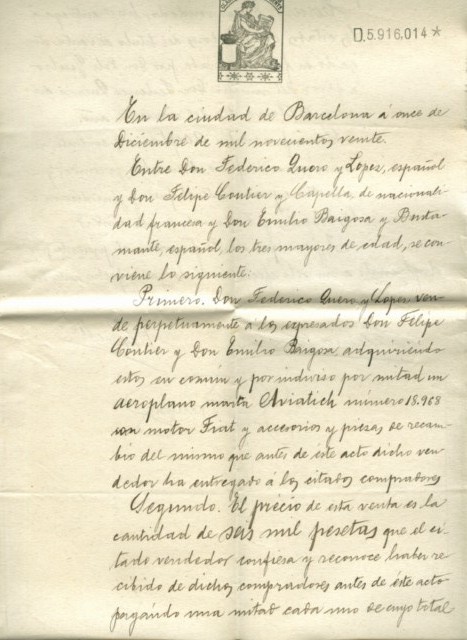 D.5.916.014*
En la ciudad de Barcelona á once de
Diciembre de mil novecientos veinte.
Entre Don Federico Quero y Lopez, español
y Don Felipe Coutier y Capella, de nacionali
dad francesa y Don Emilio Baigosa y Busta
mante, español, los tres mayores de edad, se con
viene lo siguiente:
Primero. Don Federico Quero y Lopez ven
de perpetuamente á los expresados Don Felipe
Coutier y Don Emilio Baigosa, adquiriendo
estos en común y por indiviso por mitad un
aeroplano marca Aviatich número 18.968
con motor Fiat y accesorios y piezas de recam
bio del mismo que antes de éste acto dicho ven
dedor ha entregado á los citados compradores
Segundo. El precio de esta venta es la
cantidad de seis mil pesetas que el ci
tado vendedor confiesa y reconoce haber re
cibido de dichos compradores antes de éste acto
pagando una mitad cada uno de cuyo total